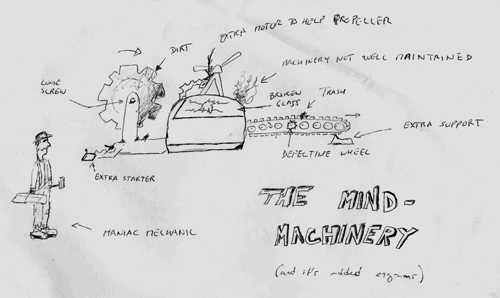 EXTRA MOTOR TO HELP PROPELLER
DIRT
MACHINERY NOT WELL MAINTAINED
LOOSE
SCREW
BROKEN
GLASS
TRASH
EXTRA SUPPORT
DEFECTINE WHEEL
EXTRA STARTER
MANIAC MECHANIC
THE MIND-
MACHINERY
(and it's added engrams)